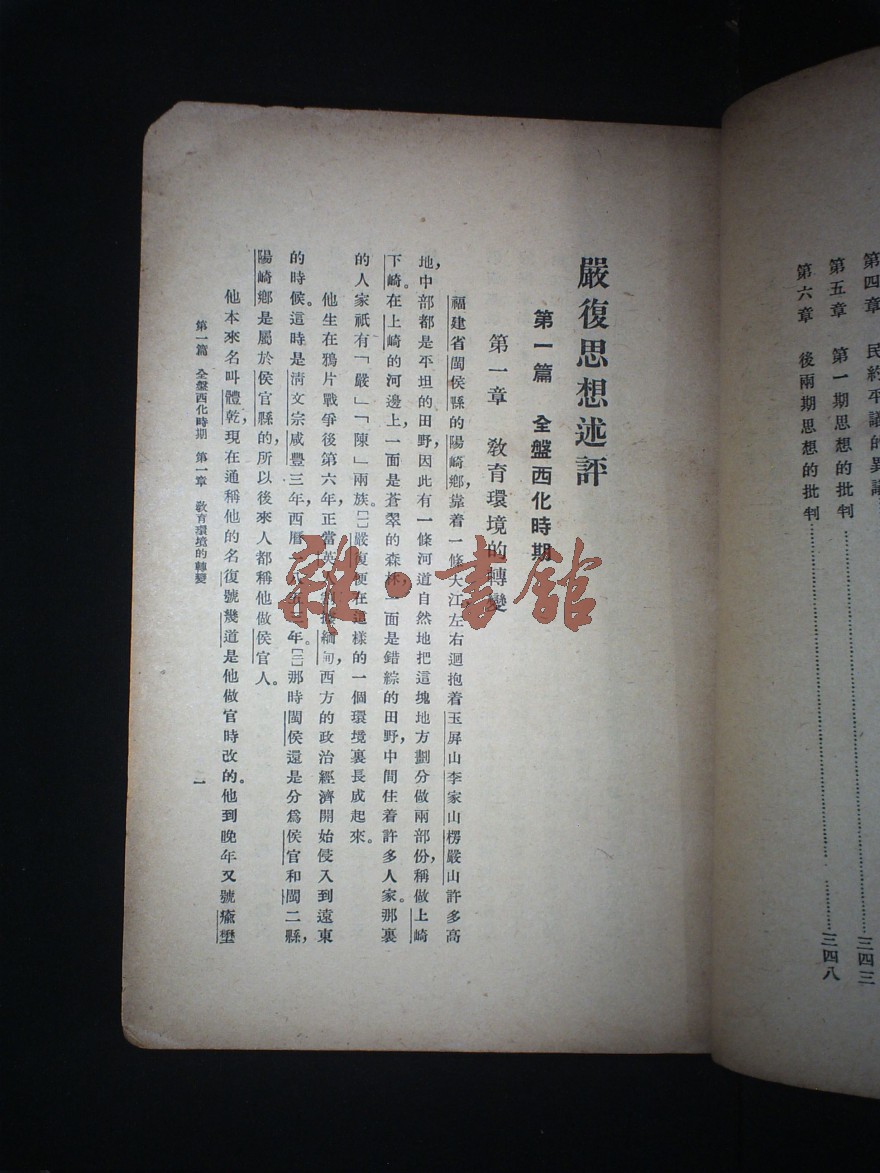 第四章 民約平議的異議
第五章 第一期思想的批判……三四三
第六章 後兩期思想的批判……三四八
嚴復思想述評
第一篇 全盤西化時期
第一章 教育環境的轉變
福建省閩侯縣的陽崎鄉,靠着一條大江,左右迴抱着玉屏山李家山楞嚴山許多高
地,中部都是平坦的田野,因此有一條河道自然地把這塊地方劃分做兩部份,稱做上崎
下崎。在上崎的河邊上,一面是蒼翠的森林,一面是錯綜的田野,中間住着許多人家。那裏
的人家祇有「嚴」「陳」兩族。〔一〕嚴復便在這樣的一個環境裏長成起來。
他生在鴉片戰爭後第六年,正當英人據緬甸,西方的政治經濟開始侵入到遠東
的時候。這時是清文宗咸豐三年,西曆一八五三年。〔二〕那時閩侯還是分爲侯官和閩二縣,
陽崎鄉是屬於侯官縣的,所以後來人都稱他做侯官人。
他本來名叫體乾,現在通稱他的名復號幾道是他做官時改的。他到晚年又號瘉壄
第一篇 全盤西化時期 第一章 教育環境的轉變
一
雜·書館